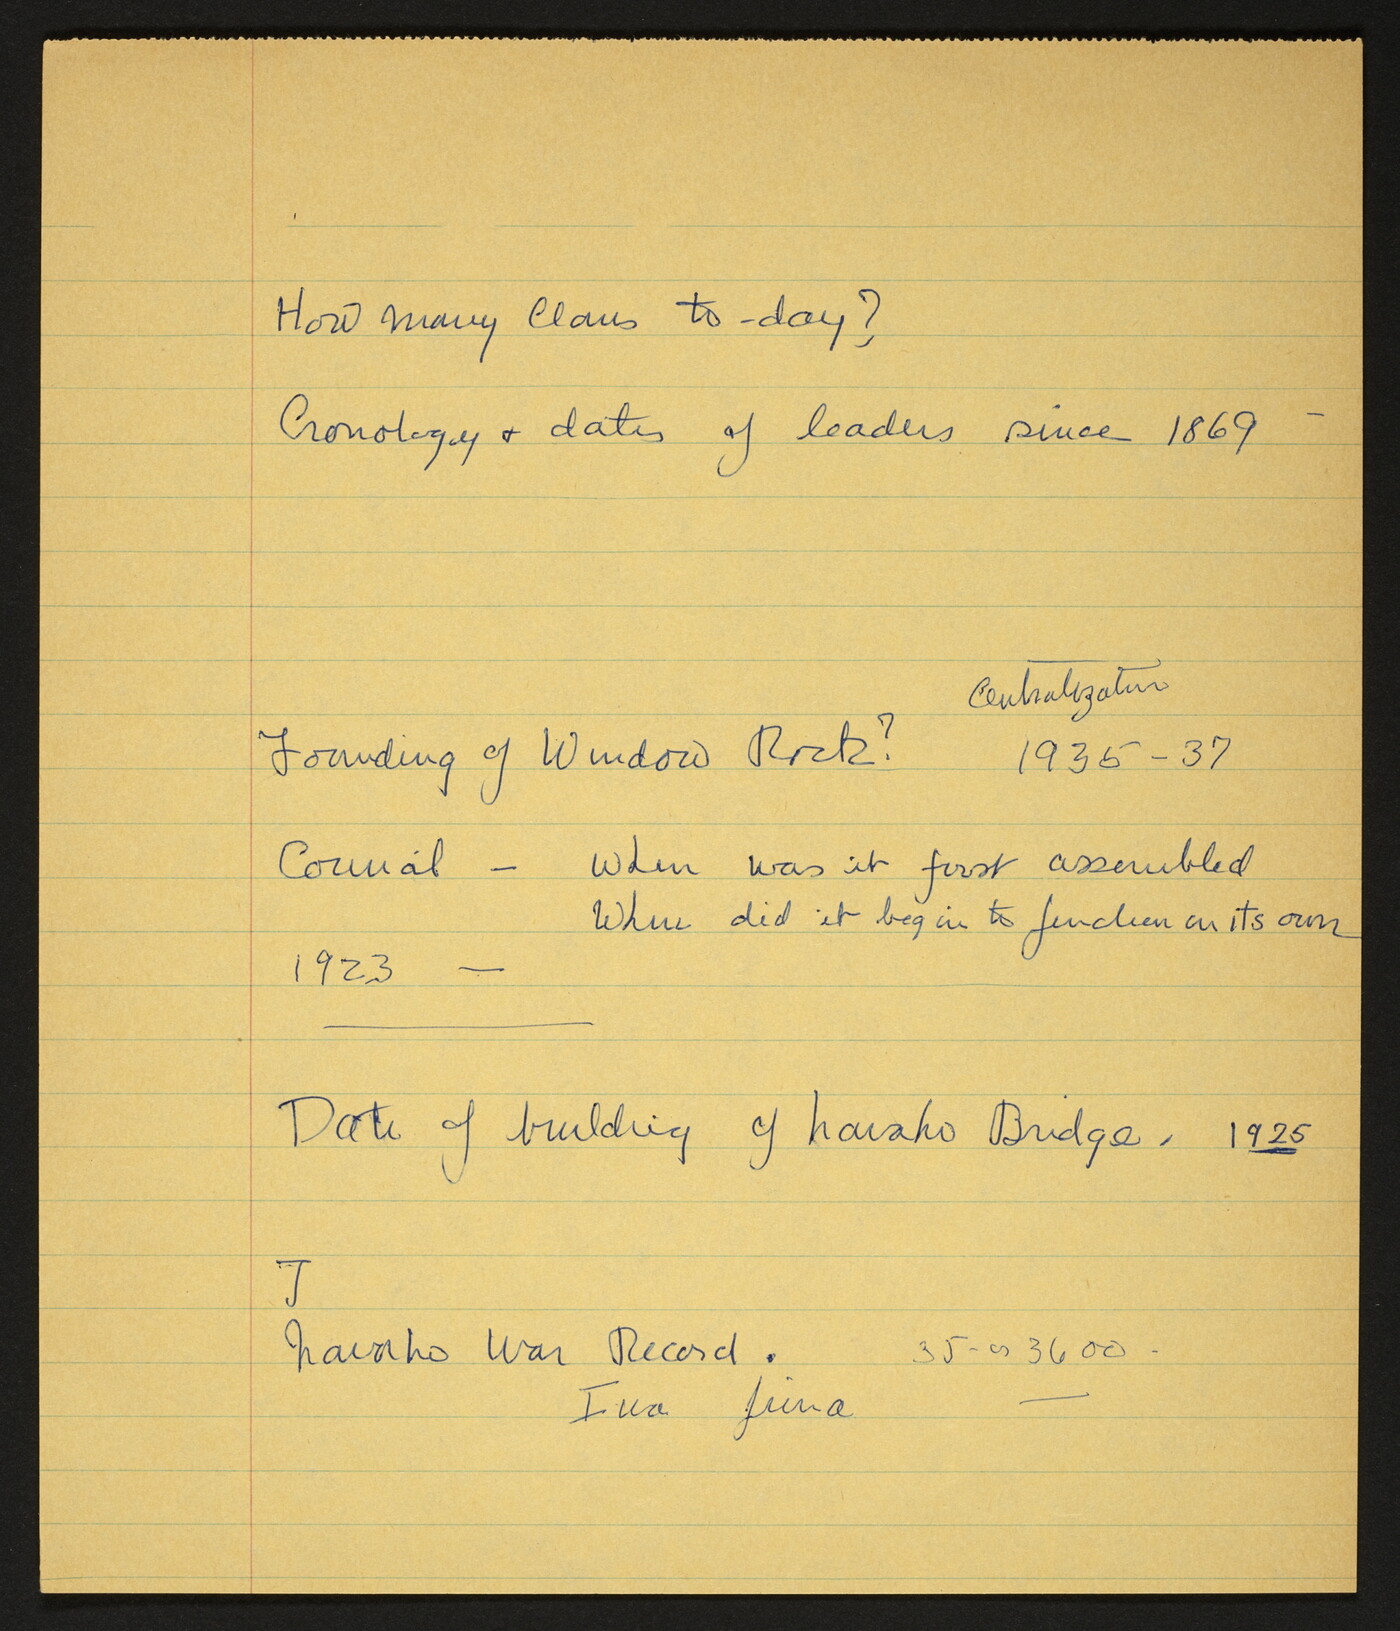 How many Clans to-day?
Cronology + dates of leaders since 1869 -
Centralization
Founding of Window Rock? 1935-37
Council - When was it first assembled
When did it begin to function on its own
1923 —
Date of building of Navaho Bridge. 1925
T
Navaho War Record. 35- or 3600 -
Iwa Jima